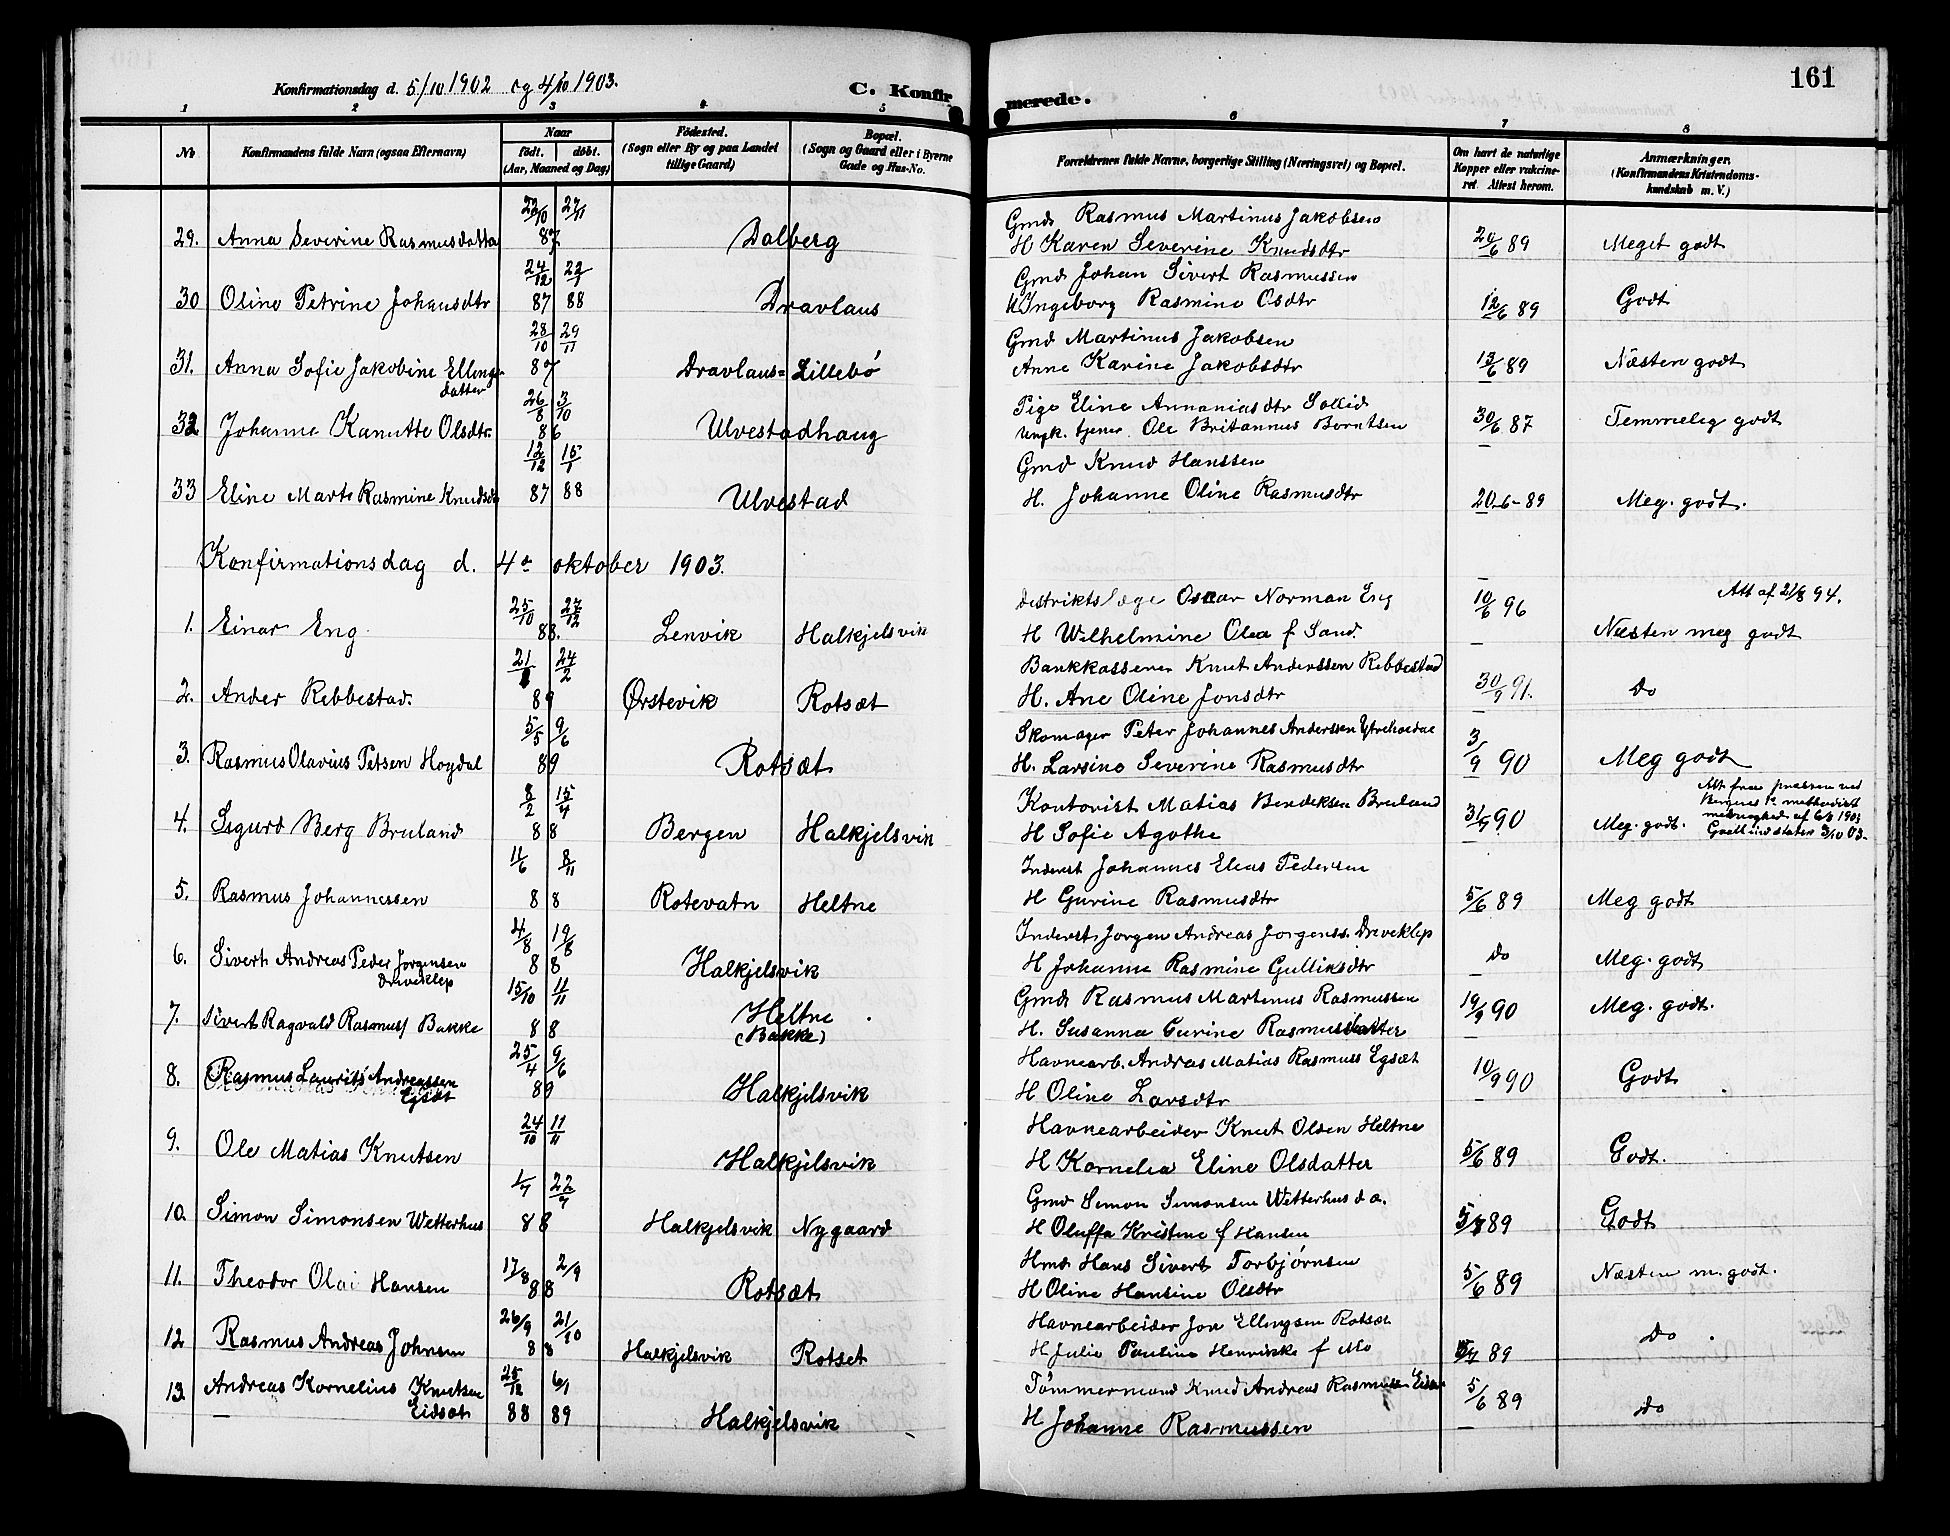 161
Konfirmationsdag d. 5/10 1902 og 4/10 1903.
C. Konfirmerede.
1 2 3 4 5 6 7 8
No
Konfirmandens fulde Navn (ogsaa Efternavn)
Naar
födt. döbt.
(Aar, Maaned og Dag)
Födested.
(Sogn eller By og paa Landet tillige Gaard)
Bopæl.
(Sogn og Gaard eller i Byerne Gade og Hus-No.
Forældrenes fulde Navne, borgerlige Stilling (Næringsvei) og Bopæl.
Om havt de naturlige Kopper eller vakcineret. Attest herom.
Anmærkninger.
(Konfirmandens Kristendomskundskab m. V.)
22/10 27/11 Gmd Rasmus Martinus Jakobsen
29. Anna Severine Rasmusdatter 87 Dalberg H Karen Severine Knudsdtr 20/6 89 Meget godt
24/12 22/1 Gmd Johan Sivert Rasmussen
30 Oline Petrine Johansdtr 87 88 Dravlaus H Ingeborg Rasmine Osdtr 12/6 89 Godt
28/10 29/11 Gmd Martinus Jakobsen
31. Anna Sofie Jakobine Ellings datter 87 Dravlaus= Lillebö Anne Karine Jakobsdtr 13/6 89 Næsten godt
26/8 3/10 Pige Eline Annaniasdtr Sollid
32 Johanne Kanutte Olsdtr 86 Ulvestadhaug Ungk. tjener. Ole Britannus Berntsen 30/6 87 Temmelig godt
12/12 15/1 Gmd Knud Hanssen
33 Eline Marte Rasmine Knudsdr 87 88 Ulvestad H. Johanne Oline Rasmusdtr 20-6-89 Meg. godt.
Konfirmationsdag d. 4de oktober 1903.
25/10 27/12 Destriktslæge Oscar Norman Eng 10/6 96 Att af 21/8 94.
1. Einar Eng 88. Lenvik Halkjelsvik H Wilhelmine Olea f Sand. Næsten meg godt
21/1 24/2 Bankkasserer Knut Anderssen Rebbestad
2. Ander Rebbestad. 89 Ørstevik Rotsæt H. Ane Oline Jonsdtr 30/9 91. do
5/5 9/6 Skomager Peter Johannes Anderssen
3. Rasmus Olavius Petsen Hogdal 89 Rotsæt H. Larsine Severine Rasmusdtr 3/9 90 Meg godt
8/2 15/4 Kontorist Matias Bendeksen Bruland
4. Sigurd Berg Bruland 88 Bergen Halkjelsvik H Sofie Agathe 31/7 90 Meg. godt.
11/6 8/11 Inderst Johannes Elias Pedersen
5. Rasmus Johannessen 88 Rotevatn Heltne H Gurine Rasmusdtr 5/6 89 Meg godt
4/8 19/8 Inderst Jorgen Andreas Jorgenss. Driveklep
6. Sivert Andreas Peder Jorgensen Driveklep 88 Halkjelsvik H Johanne Rasmine Gulliksdtr do Meg. godt
15/10 11/11 Gmd Rasmus Martinus Rasmussen
7. Sivert Ragvald Rasmuss Bakke 88 Heltne (Bakke) H. Susanna Gurine Rasmusdatter 19/9 90 Meg. godt.
25/4 9/6 Havnearb. Andreas Matias Rasmuss Egsæt
8. Rasmus Laurits Andreassen Egsæt 89 Halkjelsvik H Oline Larsdtr 10/9 90 Godt
24/10 11/11 Havnearbeider Knut Olsen Heltne
9. Ole Matias Knutsen Halkjelsvik H Kornelia Eline Olsdatter 5/6 89 Godt.
1/7 22/7 Gmd Simon Simonsen Wetterhus d. a.
10. Simon Simonsen Wetterhus 88 Halkjelsvik Nygaard H Oluffa Kristine f Hansen 89 Godt
17/8 2/9 Hmd Hans Sivert Torbjørnsen
11. Theodor Olai Hansen 88 Rotsæt H Oline Hansine Olsdtr 5/6 89 Næsten m. godt.
26/9 21/10 Havnearbeider Jon Ellingsen Rotset
12 Rasmus Andreas Johnsen 88 Halkjelsvik Rotset H Julie Pauline Henrikke f Mo 89 do
25/12 6/1 Tömmermand Knud Andreas Rasmussen
13 Andreas Kornelius Knutsen Eidsæt 88 89 Halkjelsvik H Johanne Rasmussen 5/6 89 do